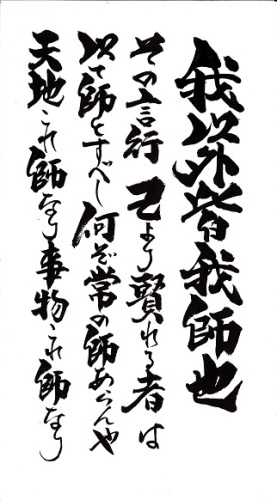 我以外皆我師也
其の言行己より賢れる者は
以て師とすべし何ぞ常の師あらんや
天地これ師なり事物これ師なり